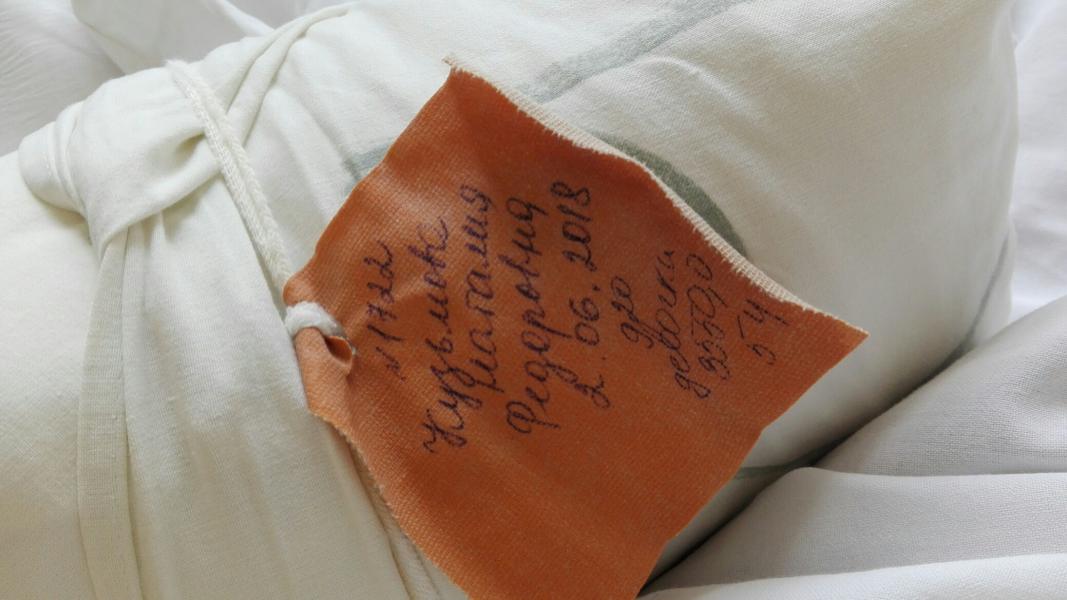 N 1722
Кузьмок
Наталия
Федоровна
2.06.2018
9 20
девочка
3550,0
54